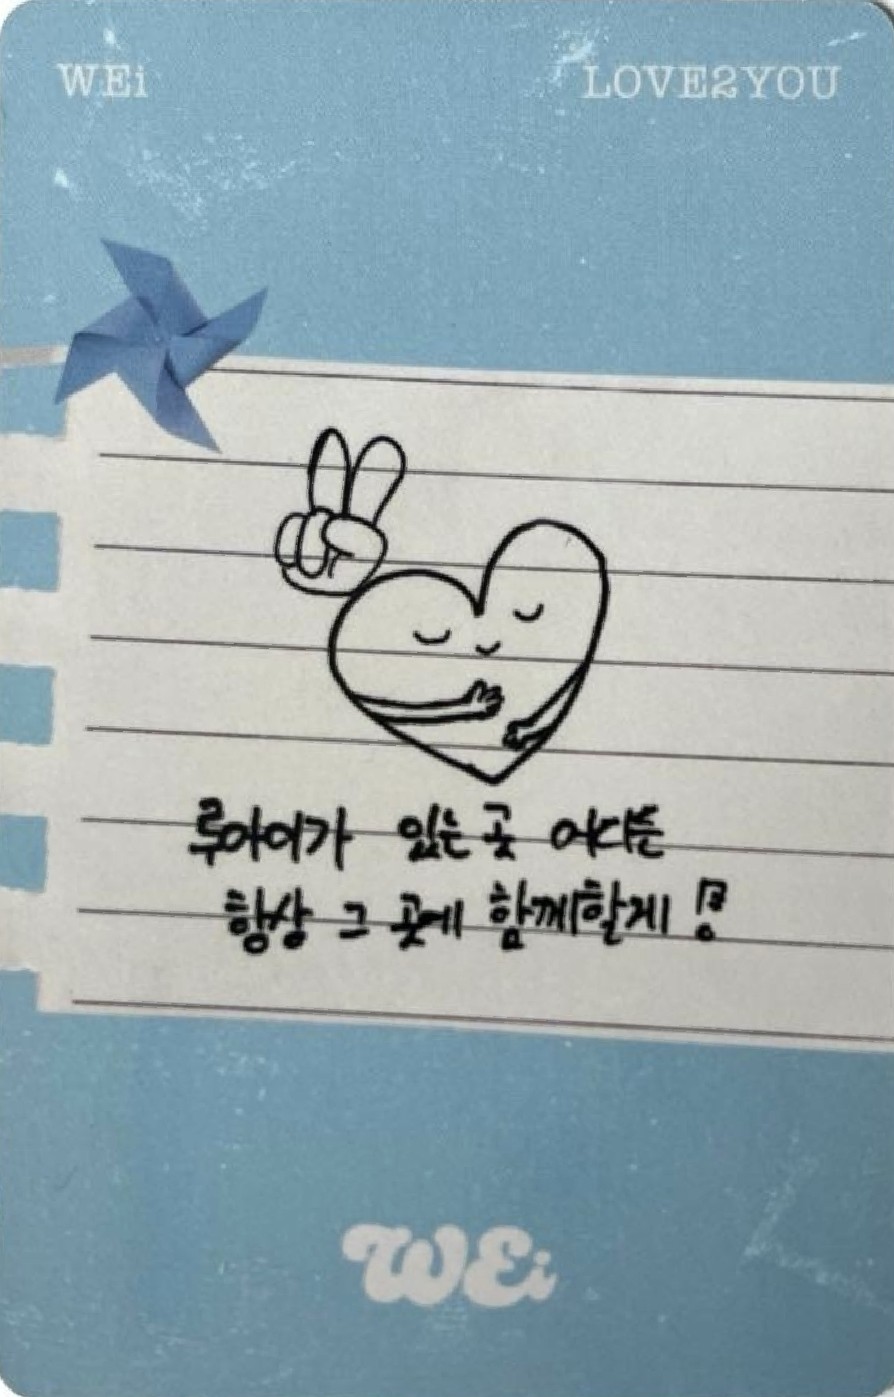 WEi
LOVE2YOU
루아이가 있는 곳 어디든
항상 그 곳에 함께할게 !
WEi